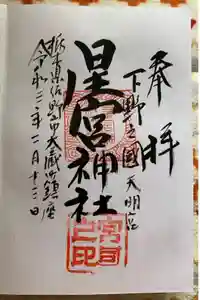 奉拝
下野之國天明宮
星宮神社
栃木県佐野市大蔵町鎮座
令和三年二月十三日
宮司之印